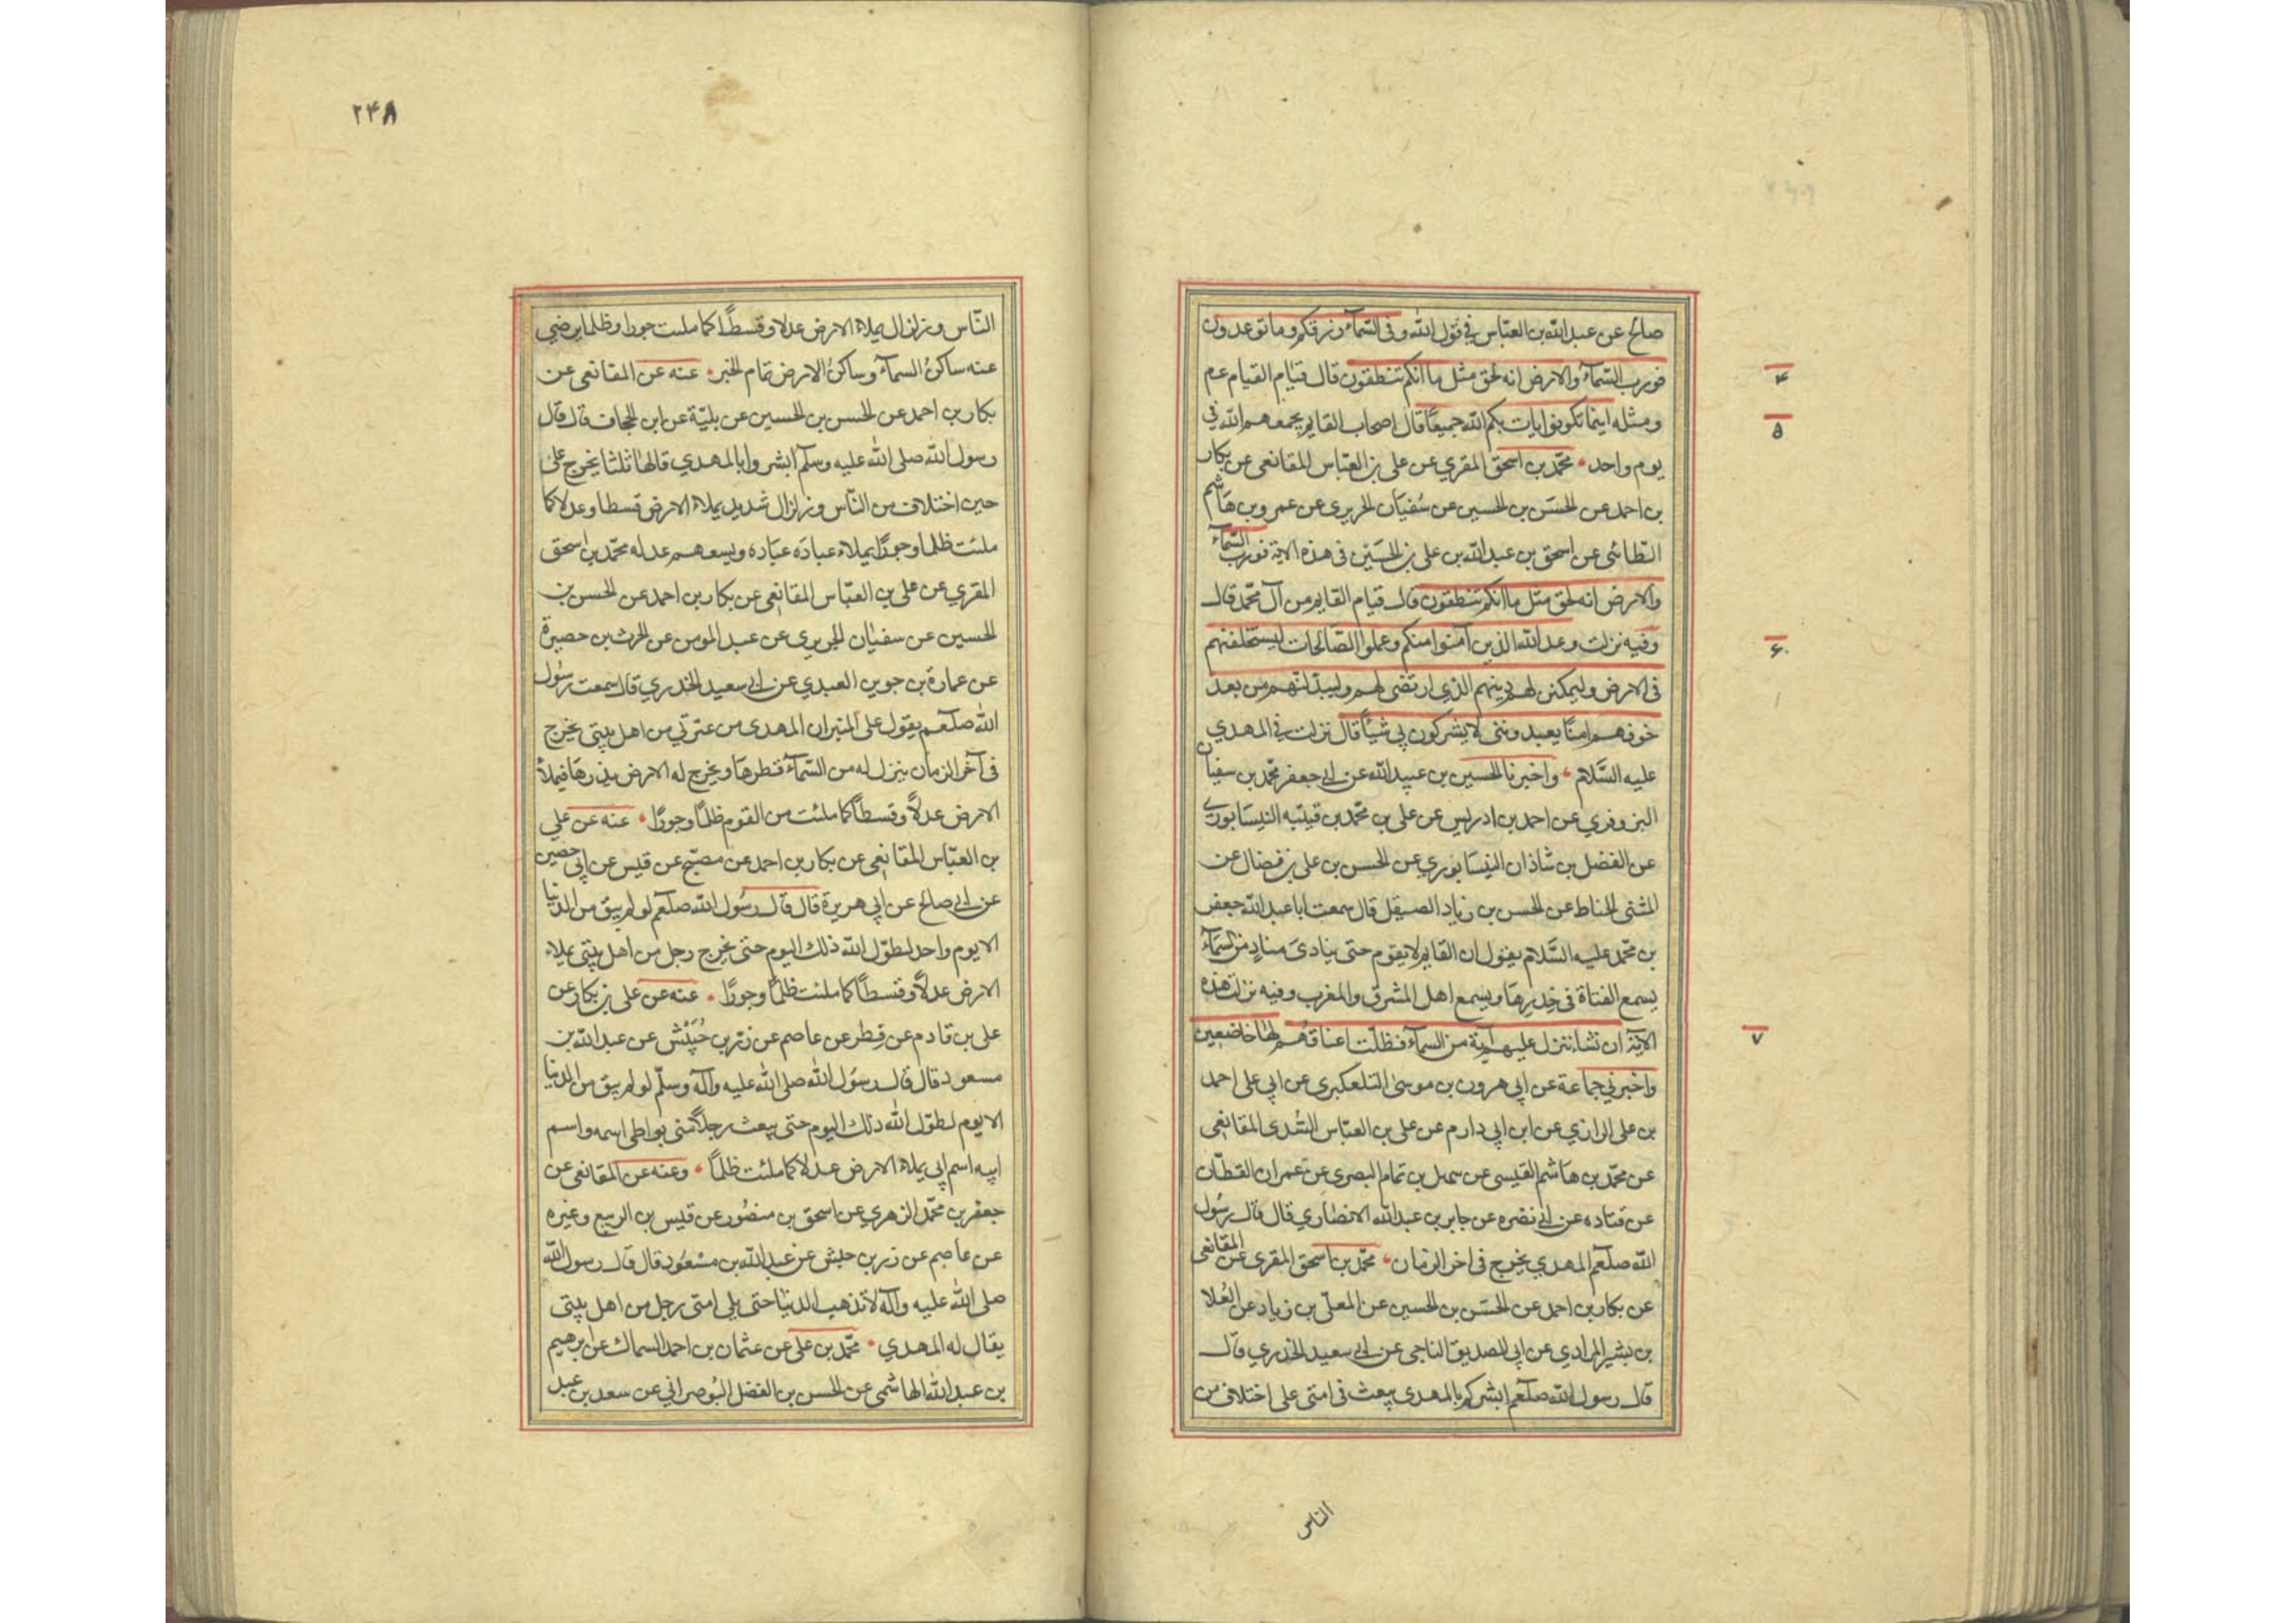 صالح عن عبد الله بن العباس في قول الله وفى السّمآء رزقكم وما توعدون
فورب السّمآء والارض انه لحق مثل ما انكم تنطقون قال قيام القيام عم
ومثله اينما تكونوا يات بكم الله جميعًا قال اصحاب القايم يجمعهم الله في
يوم واحد محمّد بن اسحق المقري عن على بن العبّاس المقانعى عن بكار
بن احمد عن الحسَن بن الحسين عن سُفيان الجريرى عن عمرو بن هَاشم
الطائى عن اسحق بن عبد الله بن على بن الحسَين فى هذه الاية فورب السّمآء
والارض انه لحق مثل ما انكم تنطقون قال قيام القايم من آل محمّد قال
وفيه نزلت وعد الله الذين آمنوا منكم وعملوا الصّالحات ليستخلفنهم
فى الارض وليمكنن لهم دينهم الذي ارتضى لهم وليبدّلنّهم من بعد
خوفهم امنًا يعبدونني لا يشركون بي شيئًا قال نزلت في المهدي
عليه السَّلام واخبرنا الحسين بن عبيد الله عن ابي جعفر محمّد بن سفيان
البزوفري عن احمد بن ادريس عن على بن محمّد بن قيتبه النيسَابوري
عن الفضل بن شاذان النيسَابوري عن الحسن بن على بن فضال عن
المثنى الحناط عن الحسن بن زياد الصيقل قال سمعت ابا عبد الله جعفر
بن محمّد عليه السَّلام يقول ان القايم لا يقوم حتى ينادىَ منادٍ من السمَآء
يسمع الفتاة فى خِدرِهَا ويسمع اهل المشرق والمغرب وفيه نزلت هذه
الآيَة ان نشا ننزل عليهم آية من السمآء فظلّت اعناقهُم لهَا خاضعين
واخبرني جماعة عن ابي هرون بن موسىٰ التلعكبرى عن ابي على احمد
بن على الرازي عن ابن ابي دارم عن على بن العبّاس السُّدى المقانعى
عن محمّد بن هَاشم القيسى عن سهل بن تمام البصرى عن عمران القطّان
عن قتاده عن ابي نضره عن جابر بن عبد الله الانصَاري قال قال رسُول
الله صلعم المهدي يخرج فى اخر الزمان محمّد بن اسحق المقرى عن المقانعى
عن بكار بن احمد عن الحسَن بن الحسين عن المعلّى بن زياد عن العُلا
بن بشير المرادي عن ابي الصديق الناجى عن ابي سعيد الخدري قال
قال رسول الله صلعم ابشركم بالمهدى يبعث فى امتى على اختلاف من
الناس
۲۴۸
النّاس وزلزال يملاء الارض عدلا وقسطًا كما ملئت جورا وظلما يرضي
عنه ساكنُ السمآء وساكنُ الارض تمام الخبر عنه عن المقانعى عن
بكار بن احمد عن الحسن بن الحسين عن بليّة عن ابن الحجاف قال قال
رسول الله صلى الله عليه وسلم ابشروا بالمهدي قالها ثلثا يخرج علىٰ
حين اختلاف من النّاس وزلزال شديد يملاء الارض قسطا وعدلا كما
ملئت ظلما وجورًا يملاء عباده عبَاده ويسعهم عدله محمّد بن اسحق
المقري عن على بن العبّاس المقانعى عن بكار بن احمد عن الحسن بن
الحسين عن سفيٰان الجريرى عن عبد المومن عن الحرث بن حصيرة
عن عمارة بن جوين العبدي عن ابي سعيد الخدري قال سمعت رسُول
الله صلعم يقول على المنبر ان المهدى من عترتي من اهل بيتى يخرج
فى آخر الزمان ينزل له من السّمآء قطرهَا ويخرج له الارض بذرهَا فيملأ
الارض عدلًا وقسطاً كما ملئت من القوم ظلمًا وجورًا عنه عن علي
بن العبّاس المقانعى عن بكار بن احمد عن مصبّح عن قيس عن ابي حصين
عن ابي صالح عن ابي هريرة قال قال رسُول الله صلعم لو لم يبق من الدنيا
الا يوم واحد لطوّل الله ذلك اليوم حتى يخرج رجل من اهل بيتى يملاء
الارض عدلًا وقسطاً كما ملئت ظلمًا وجورًا عنه عن على بن بكار عن
على بن قادم عن فِطر عن عاصم عن زرّ بن حُبَيْش عن عبد الله بن
مسعود قال قال رسُول الله صلى الله عليه وآله وسلّم لو لم يبق من الدنيا
الا يوم لطوّل الله ذلك اليوم حتى يبعث رجلًا منى يواطى اسمه واسم
ابيه اسم ابي يملاء الارض عدلا كما ملئت ظلمًا وعنه عن المقانعى عن
جعفر بن محمّد الزهري عن اسحق بن منصُور عن قيس بن الربيع وغيره
عن عاصم عن زر بن حبش عن عبد الله بن مسْعُود قال قال رسول الله
صلى الله عليه وآله لا تذهب الدنيَا حتى يلي امتى رجل من اهل بيتى
يقال له المهدي محمّد بن على عن عثمان بن احمد السماك عن ابرهيم
بن عبد الله الهاشمى عن الحسن بن الفضل البُوصراني عن سعد بن عبد
۴
۵
۶
۷